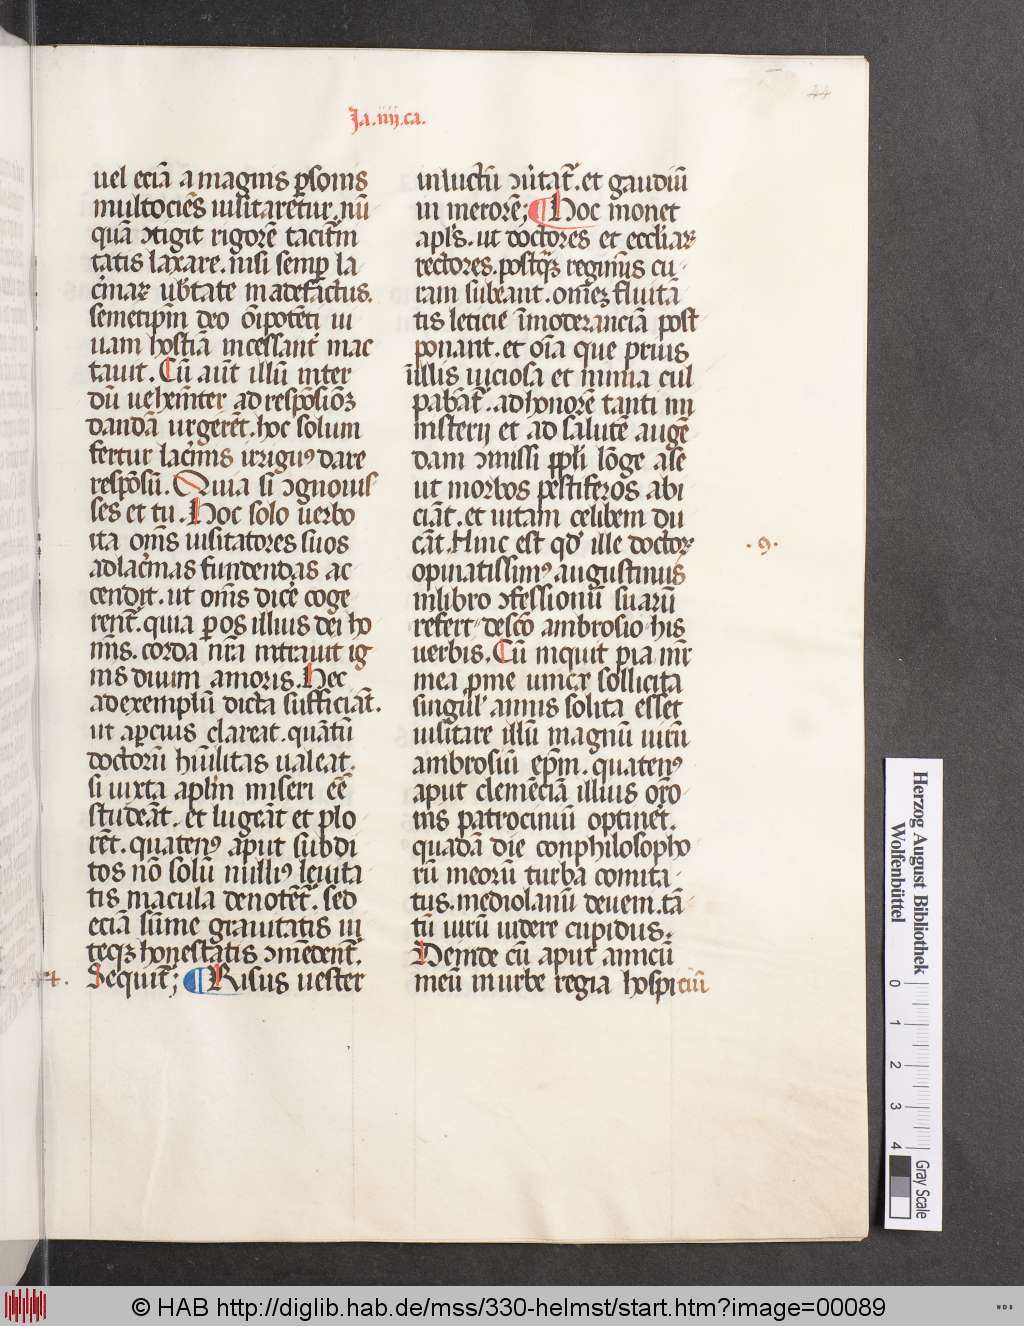 44
Ja.iiij.ca.
uel eciā a magnis ꝑsonis
multociēs uisitaretur. nū
quā ꝯtigit rigorē tacit̄ni
tatis laxare. nisi semꝑ la
c̓maꝝ ub̓tate madefactus.
semetip̄m deo ōīpotēti ui
uam hostiā incessant̓ mac
tauit. Cū aūt illū inter
dū uehem̄ter ad respōsiōēꝫ
dandā urgerēt. hoc solum
fertur lac̓mis irriguꝰ dare
respōsū. Quia si ꝯgnouis
ses et tu. Hoc solo uerbo
ita om̄s uisitatores suos
ad lac̓mas fundendas ac
cendit. ut om̄s dic̓e coge
rent̄. quia ꝑ os illius dei ho
īnis. corda nr̄a intrauit ig
nis diuini amoris. Hec
ad exemplū dicta sufficiāt.
ut aꝑcius clareat. quātū
doctorū hūilitas ualeat.
si iuxta aplīm miseri eē
studeāt. et lugeāt et plo
rēt. quatenꝰ aput subdi
tos nō solū nulliꝰ leuita
tis macula denotēt̄. sed
eciā sūme grauitatis ui
teqꝫ honestatis ꝯmēdent̄.
.4. Sequit̄; ¶ Risus uester
in luctū ꝯu̓tat̄. et gaudiū
in merorē; ¶ Hoc monet
apl̄s. ut doctores et eccl̄iaꝝ
rectores. postqꝫ regimīs cu
ram subeant. om̄eꝫ fluitā
tis leticie īmoderanciā post
ponant. et oīa que prius
ī illis uiciosa et nimia cul
pabāt̄. ad honorē tanti mi
nisterij et ad salutē augē
dam ꝯmissi ppl̄i lōge a se
ut morbos pestiferos abi
ciāt. et uitam celibem du
cāt. Hinc est qd̓ ille doctor
.9.
opinatissimꝰ augustinus
in libro ꝯfessionū suarū
refert de sc̄o ambrosio his
uerbis. Cū inquit pia mr̄
mea ꝑ me umcꝝ sollicita
singul̓ annis solita esset
uisitare illū magnū uirū
ambrosiū ep̄m. quatenꝰ
aput clemēciā illius or̄o
nis patrociniū optinet̓.
quadā die conphilosopho
rū meorū turba comita
tus. mediolanū deueni. tā
tū uirū uidere cupidus.
Deinde cū aput amicū
meū in urbe regia hospiciū
Herzog August Bibliothek
Wolfenbüttel
0 1 2 3 4
Gray Scale
© HAB http://diglib.hab.de/mss/330-helmst/start.htm?image=00089